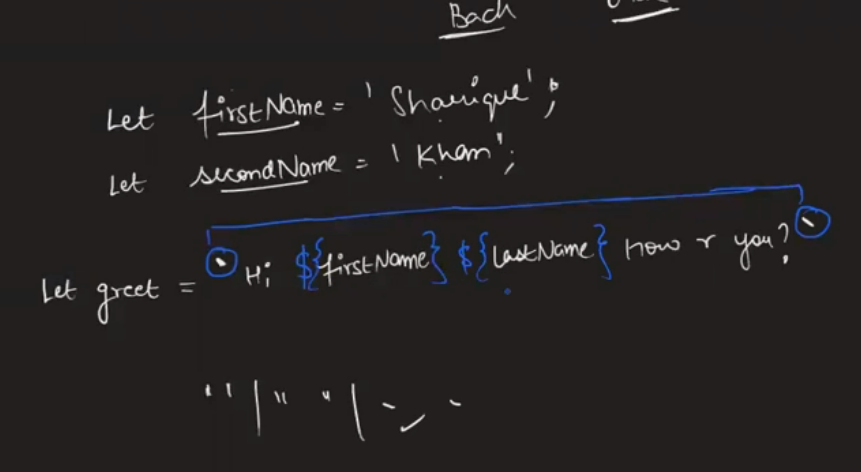 Bach
Let firstName = 'Sharique';
Let secondName = 'Khan';
Let greet = `Hi ${firstName} ${lastName} How r you?`
' ' | " " | ` `